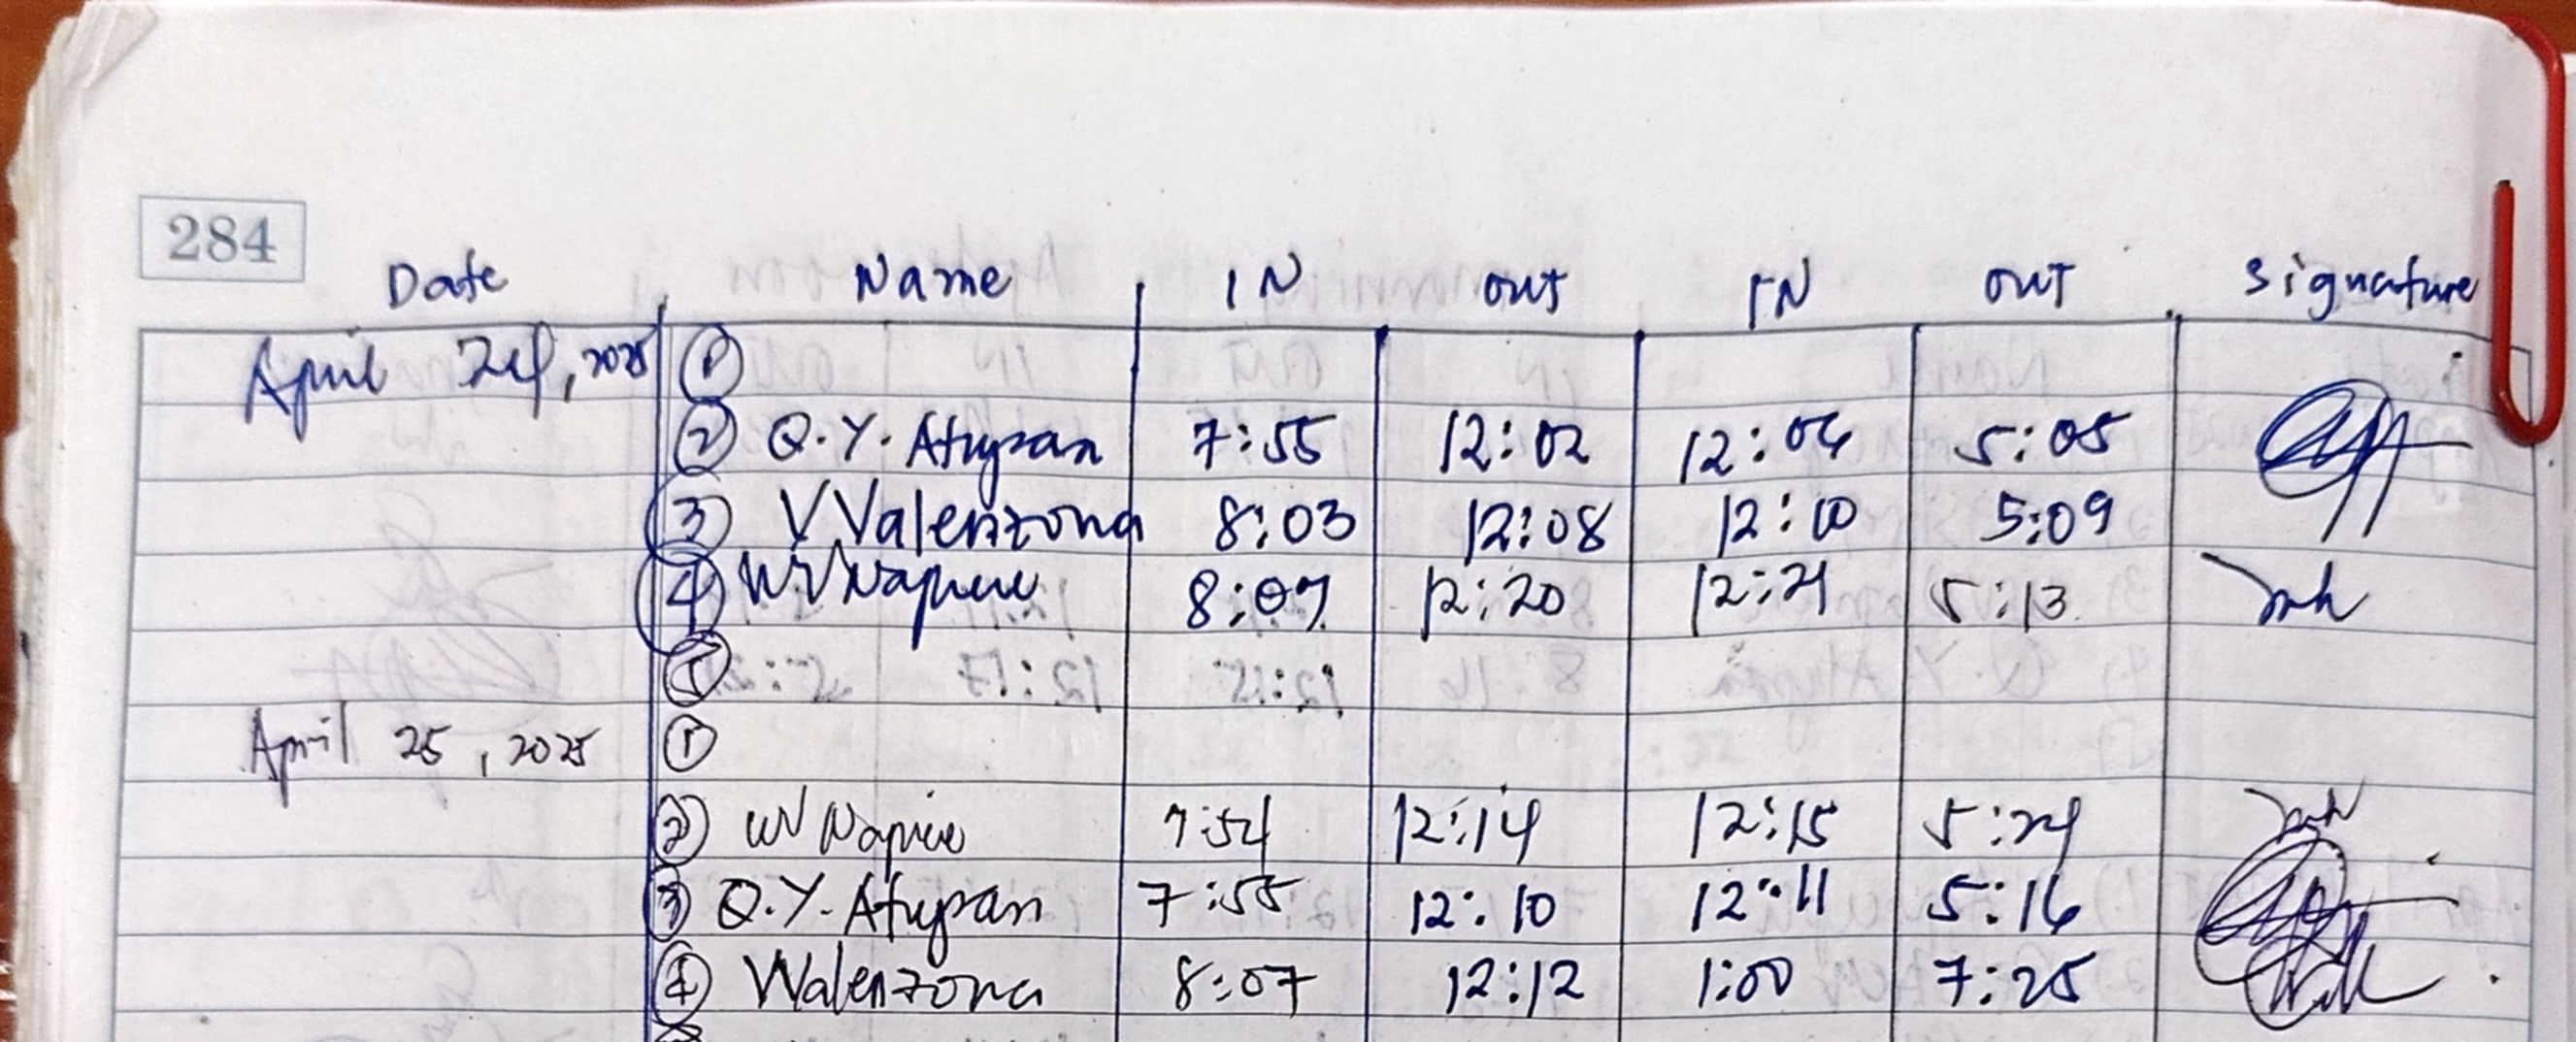 284
Date Name IN OUT IN OUT Signature
April 24, 2025 1
2 Q.Y. Atupan 7:55 12:02 12:04 5:05
3 V Valenzona 8:03 12:08 12:10 5:09
4 8:07 12:20 12:21 5:13
5
April 25, 2025 1
2 7:54 12:14 12:15 5:24
3 Q.Y. Atupan 7:55 12:10 12:11 5:16
4 VValenzona 8:07 12:12 1:00 7:25